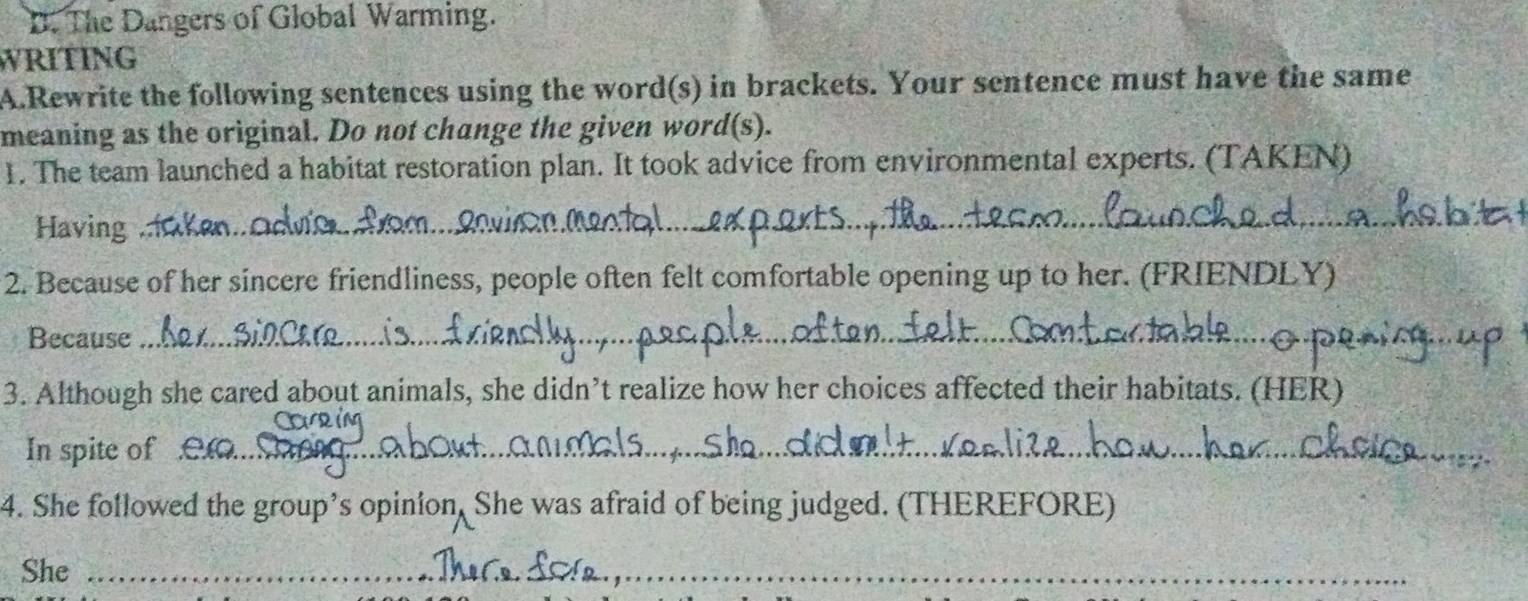 D. The Dangers of Global Warming.
WRITING
A.Rewrite the following sentences using the word(s) in brackets. Your sentence must have the same
meaning as the original. Do not change the given word(s).
1. The team launched a habitat restoration plan. It took advice from environmental experts. (TAKEN)
Having taken advice from environmental experts, the team launched a habitat
2. Because of her sincere friendliness, people often felt comfortable opening up to her. (FRIENDLY)
Because her sincere is friendly, people often felt comfortable opening up
3. Although she cared about animals, she didn't realize how her choices affected their habitats. (HER)
careing
In spite of about animals, she didn't realize how her choice
4. She followed the group's opinion, She was afraid of being judged. (THEREFORE)
She Therefore,